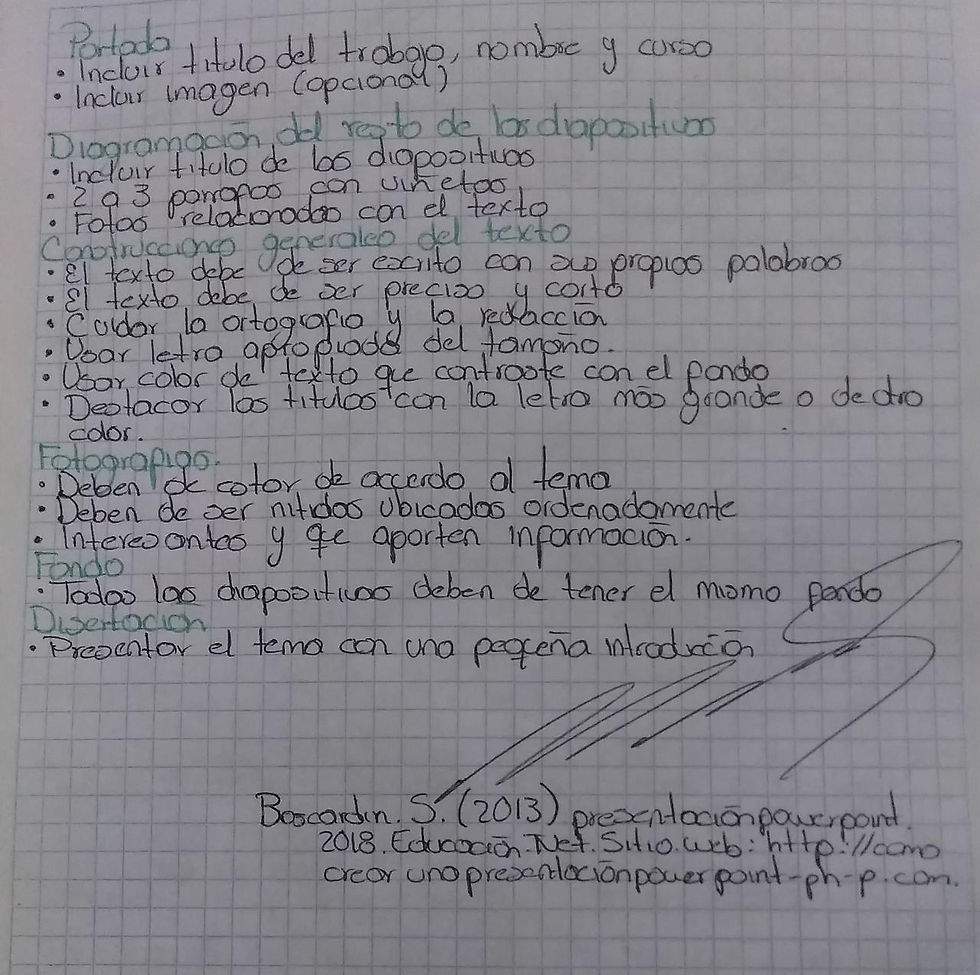 Portada
• Incluir titulo del trabajo, nombre y curso
• Incluir imagen (opcional)
Diagramación del resto de las diapositivas
• Incluir titulo de las diapositivas
• 2 a 3 parrafos con viñetas
• Fotos relacionadas con el texto
Construcciones generales del texto
• El texto debe de ser escrito con sus propias palabras
• El texto debe de ser preciso y corto
• Cuidar la ortografia y la redacción
• Usar letra apropiada del tamaño.
• Usar color de texto que contraste con el fondo
• Destacar los titulos con la letra mas grande o de otro
color.
Fotografias.
• Deben de color de acuerdo al tema
• Deben de ser nitidas ubicadas ordenadamente
• Interesantes y qe aporten información.
Fondo
• Todas las diapositivas deben de tener el mismo fondo
Disertación
• Presentar el tema con una peqeña introducción
Boscardin. S. (2013) presentaciónpowerpoint.
2018. Educación. Net. Sitio.web: http://como
crear unapresentaciónpowerpoint-ph-p.com.